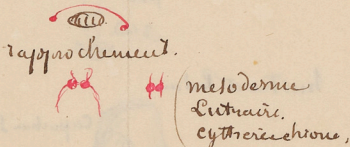 rapprochement.
mesoderme
Lutraire.
cytherea chione,